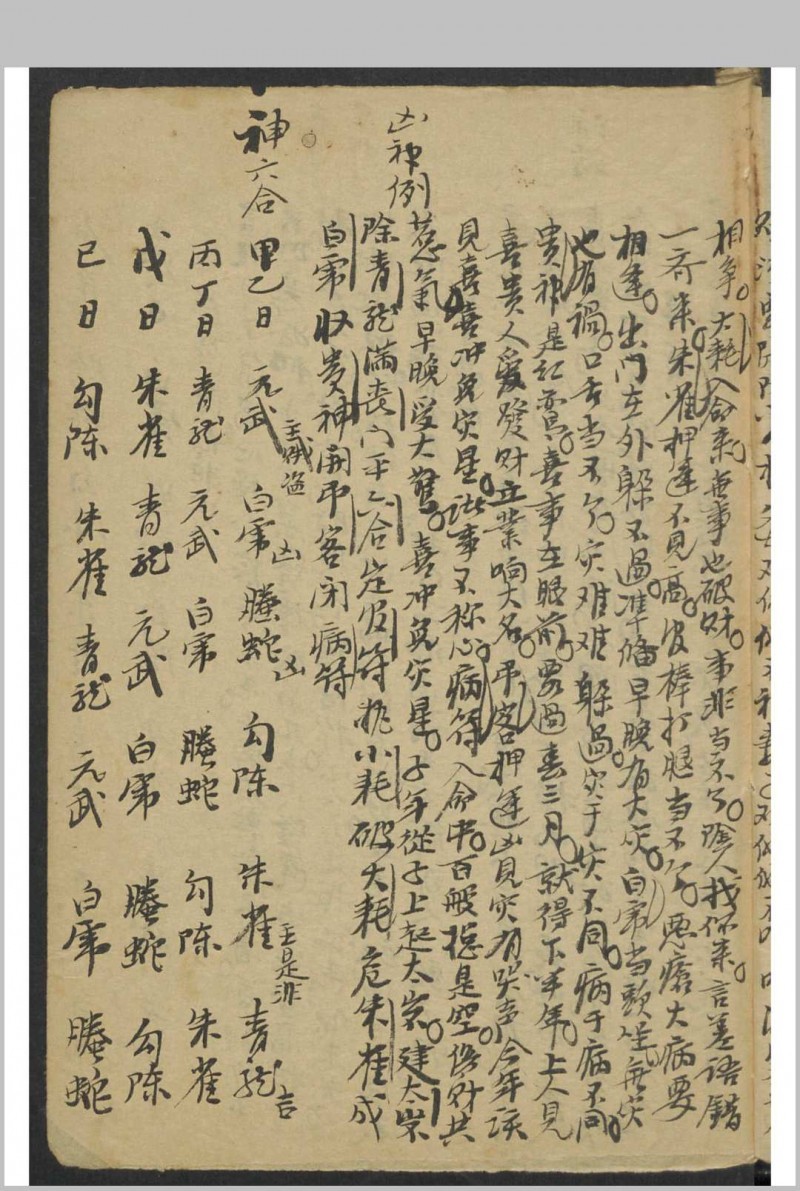 相争。大耗入命来无事也破财。事非当不了。除人找你来。言差语错
一齐来朱雀押逢不见高。皮棒打腿当不了。恶疮大病要
相逢。出门在外躲不过。准备早晚有大灾。白虎当头坐无灾
也有祸。口舌当不了。灾难难躲过。灾于灾不同。病于病不同。
贵神是红鸾。喜事在眼前。要过春三月。就得下半年。上人见
喜贵人爱发财立业响大名。吊客押逢凶见灾有哭声。今年
见喜喜冲免灾星。诸事不称心。病符入命中。百般总是空。倍财共
惹气早晚受大惊。喜冲免灾星。子年从子上起太岁。建太岁
除青龙满丧门平六合定官符执小耗破大耗危朱雀成
白虎收贵神开吊客闭病符
凶神例
神六合
甲乙日 元武 主贼盗 白虎 凶 螣蛇 凶 勾陈 朱雀 主是非 青龙 吉
丙丁日 青龙 元武 白虎 螣蛇 勾陈 朱雀
戊日 朱雀 青龙 元武 白虎 螣蛇 勾陈
己日 勾陈 朱雀 青龙 元武 白虎 螣蛇